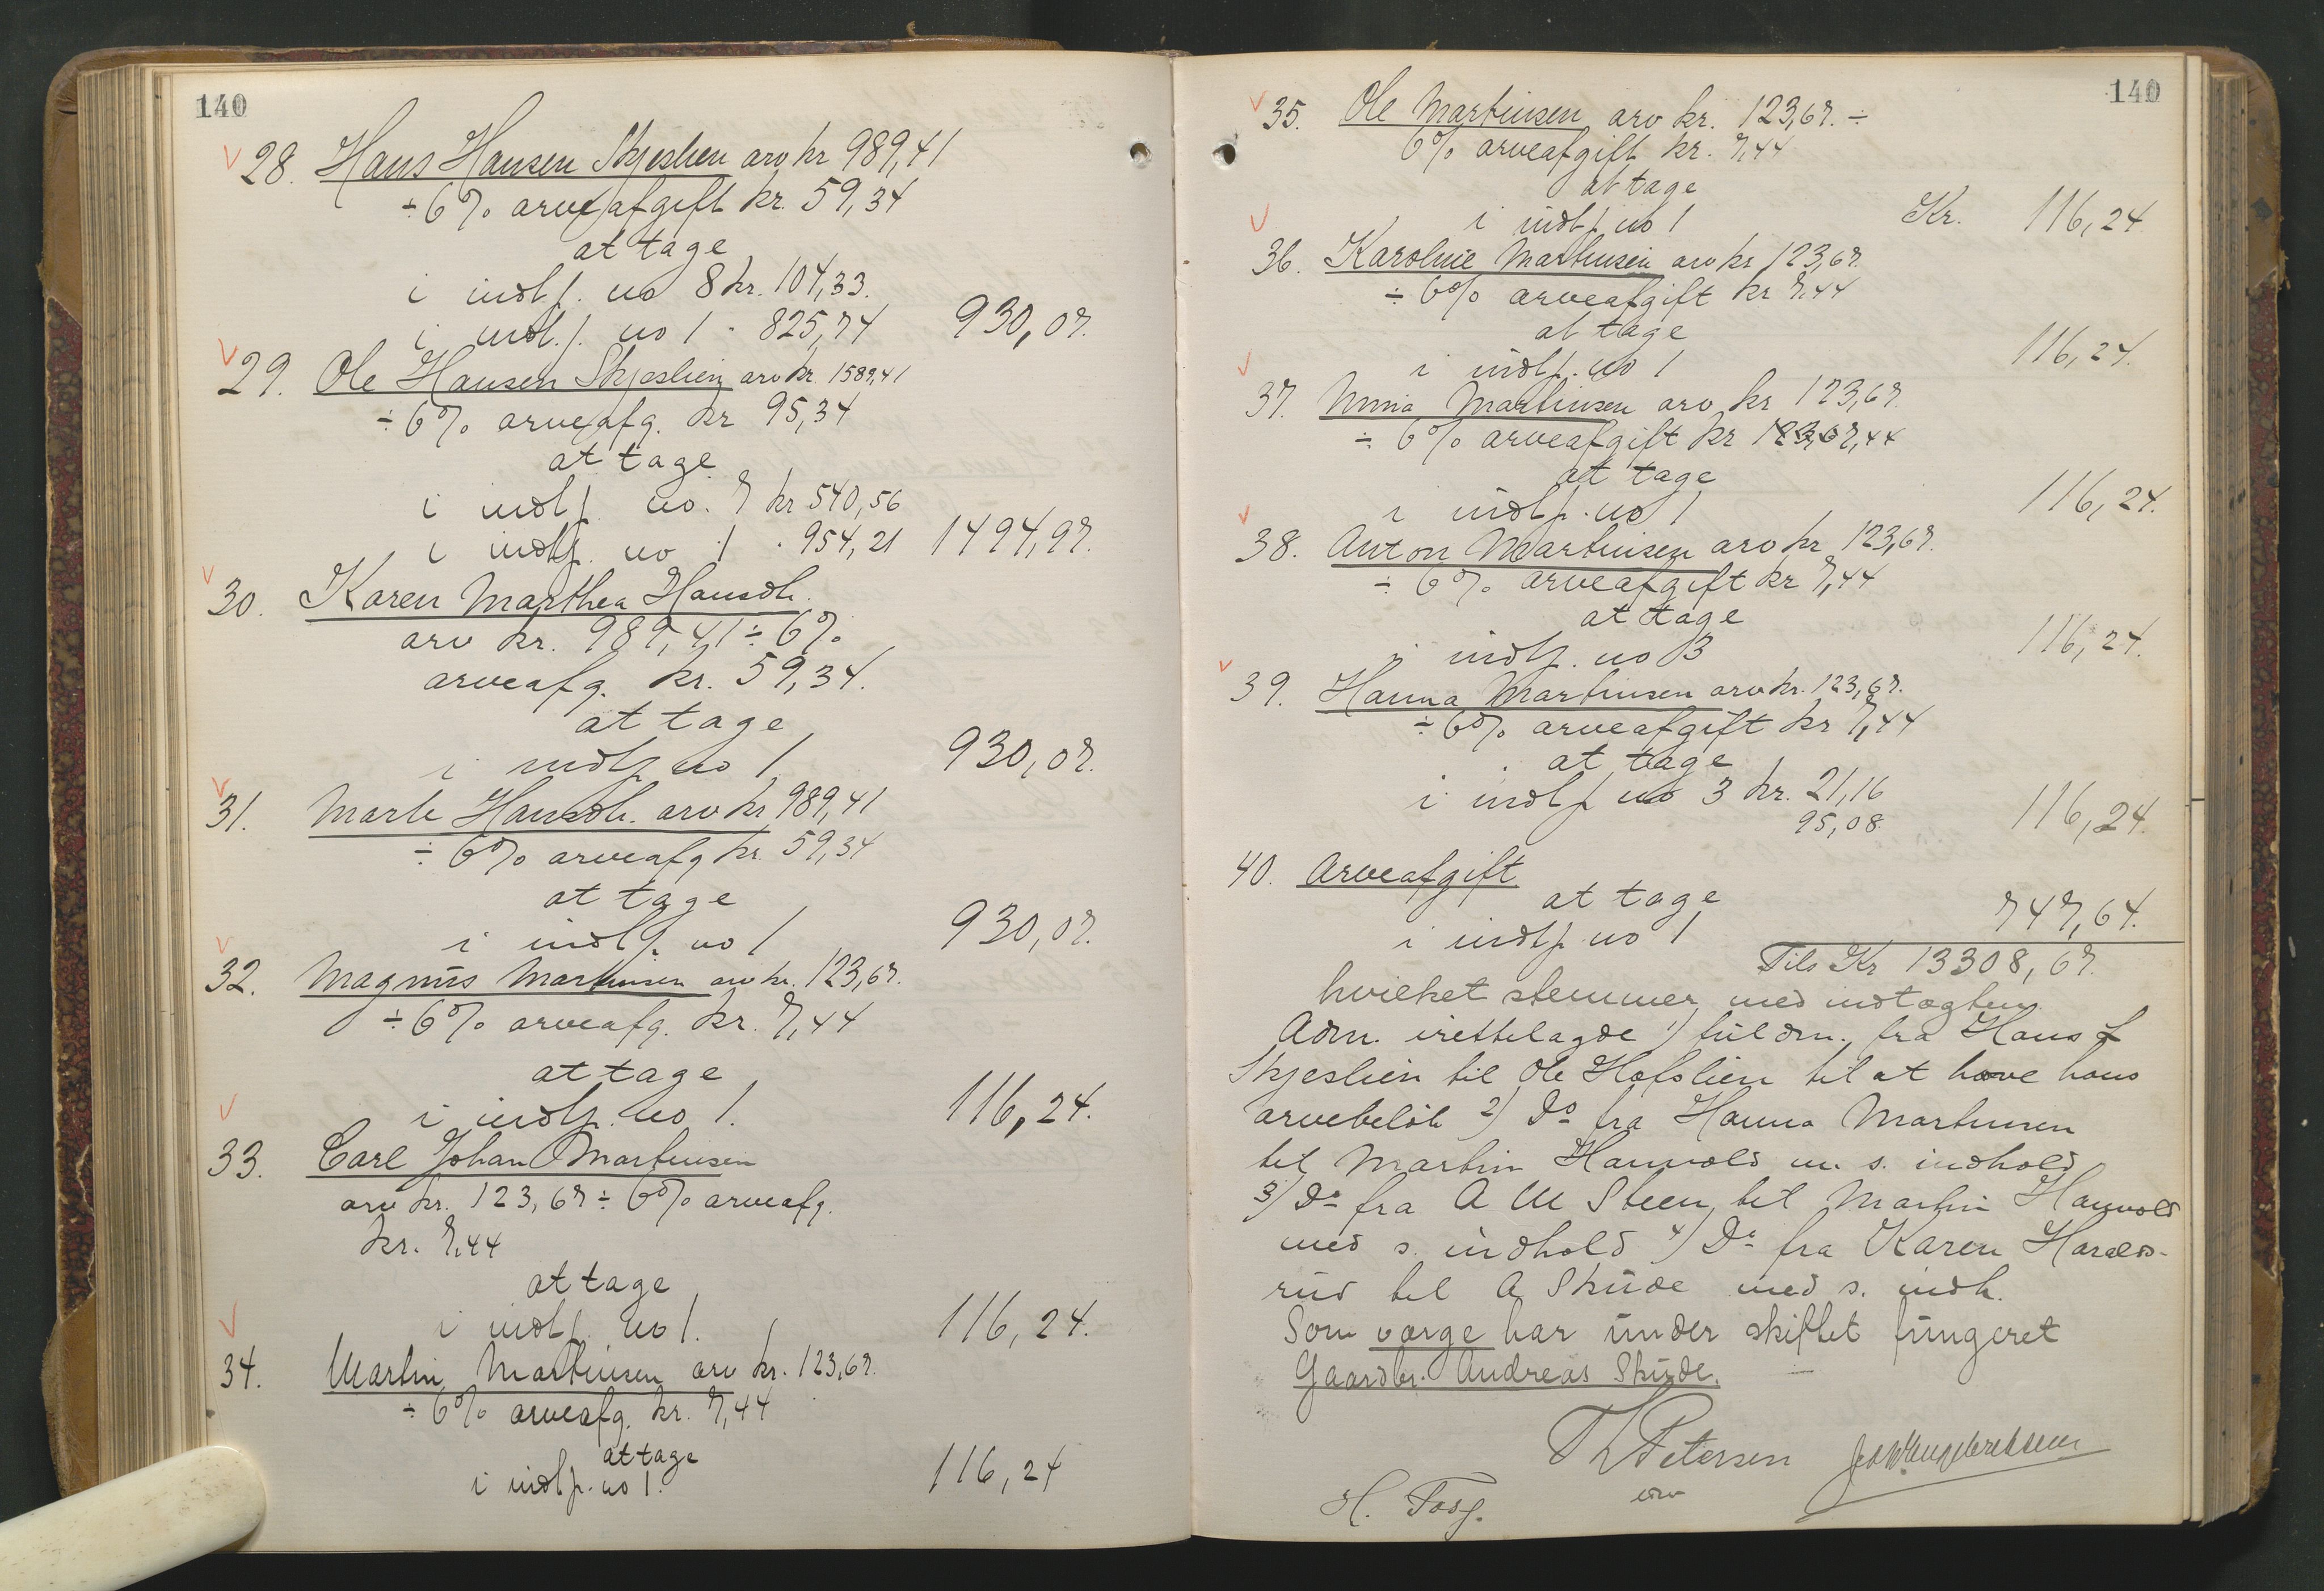 140
28. Hans Hansen Skjeslien arv kr 989,41
÷ 6% arveafgift kr. 59,34
at tage
i indtp. no 8 kr. 104,33.
i indt.p. no 1 " 825,74 930,07.
29. Ole Hansen Skjeslien arv kr. 1589,41
÷ 6% arveafg. kr 95,34
at tage
i indtp. no. 7 kr 540,56
i indtp. no 1 " 954,21 1494,97.
30. Karen Marthea Hansdtr.
arv kr. 989,41 ÷ 6%
arveafg. kr. 59,34.
at tage
i indtp no 1 930,07.
31. Marte Hansdtr. arv kr 989,41
÷ 6% arveafg kr. 59,34
at tage
i indtp. no 1 930,07.
32. Magnus Martinsen arv kr. 123,67.
÷ 6% arveafg. kr. 7,44
at tage
i indtp. no 1. 116,24.
33. Carl Johan Martinsen
arv kr. 123,67 ÷ 6% arveafg.
kr. 7,44
at tage
i indtp. no 1. 116,24.
34. Martin Martinsen arv kr. 123,67.
÷ 6% arveafg. kr. 7,44
at tage
i indtp. no 1. 116,24
140
35. Ole Martinsen arv kr. 123,67. ÷
6% arveafgift kr. 7,44
at tage
i indtp. no 1 Kr. 116,24.
36. Karoline Martinsen arv kr 123,67.
÷ 6% arveafgift kr 7,44
at tage
i indtp. no 1 116,24.
37. Martinsen arv kr 123,67.
÷ 6% arveafgift kr 7,44
at tage
i indtp. no 1 116,24.
38. Anton Martinsen arv kr 123,67.
÷ 6% arveafgift kr 7,44
at tage
i indtp. no 3 116,24.
39. Hanna Martinsen arv kr. 123,67.
÷ 6% arveafgift kr 7,44
at tage
i indtp no 3 kr. 21,16
95,08 116,24.
40. Arveafgift
at tage
i indtp. no 1 747,64.
Tils Kr 13308,67.
hvilket stemmer med indtægten.
Adm. irettelagde 1) fuldm. fra Hans
Skjeslien til Ole Hofslien til at hæve hans
arvebeløb 2) Do fra Hanna Martinsen
til Martin Hanvold m. s. indhold
3) Do fra A M Steen til Martin Hanvold
med s. indhold 4) Do fra Karen Haralds-
rud til A Skude med s. indh.
Som værge har under skiftet fungeret
Gaardbr. Andreas Skude.
Petersen
H.